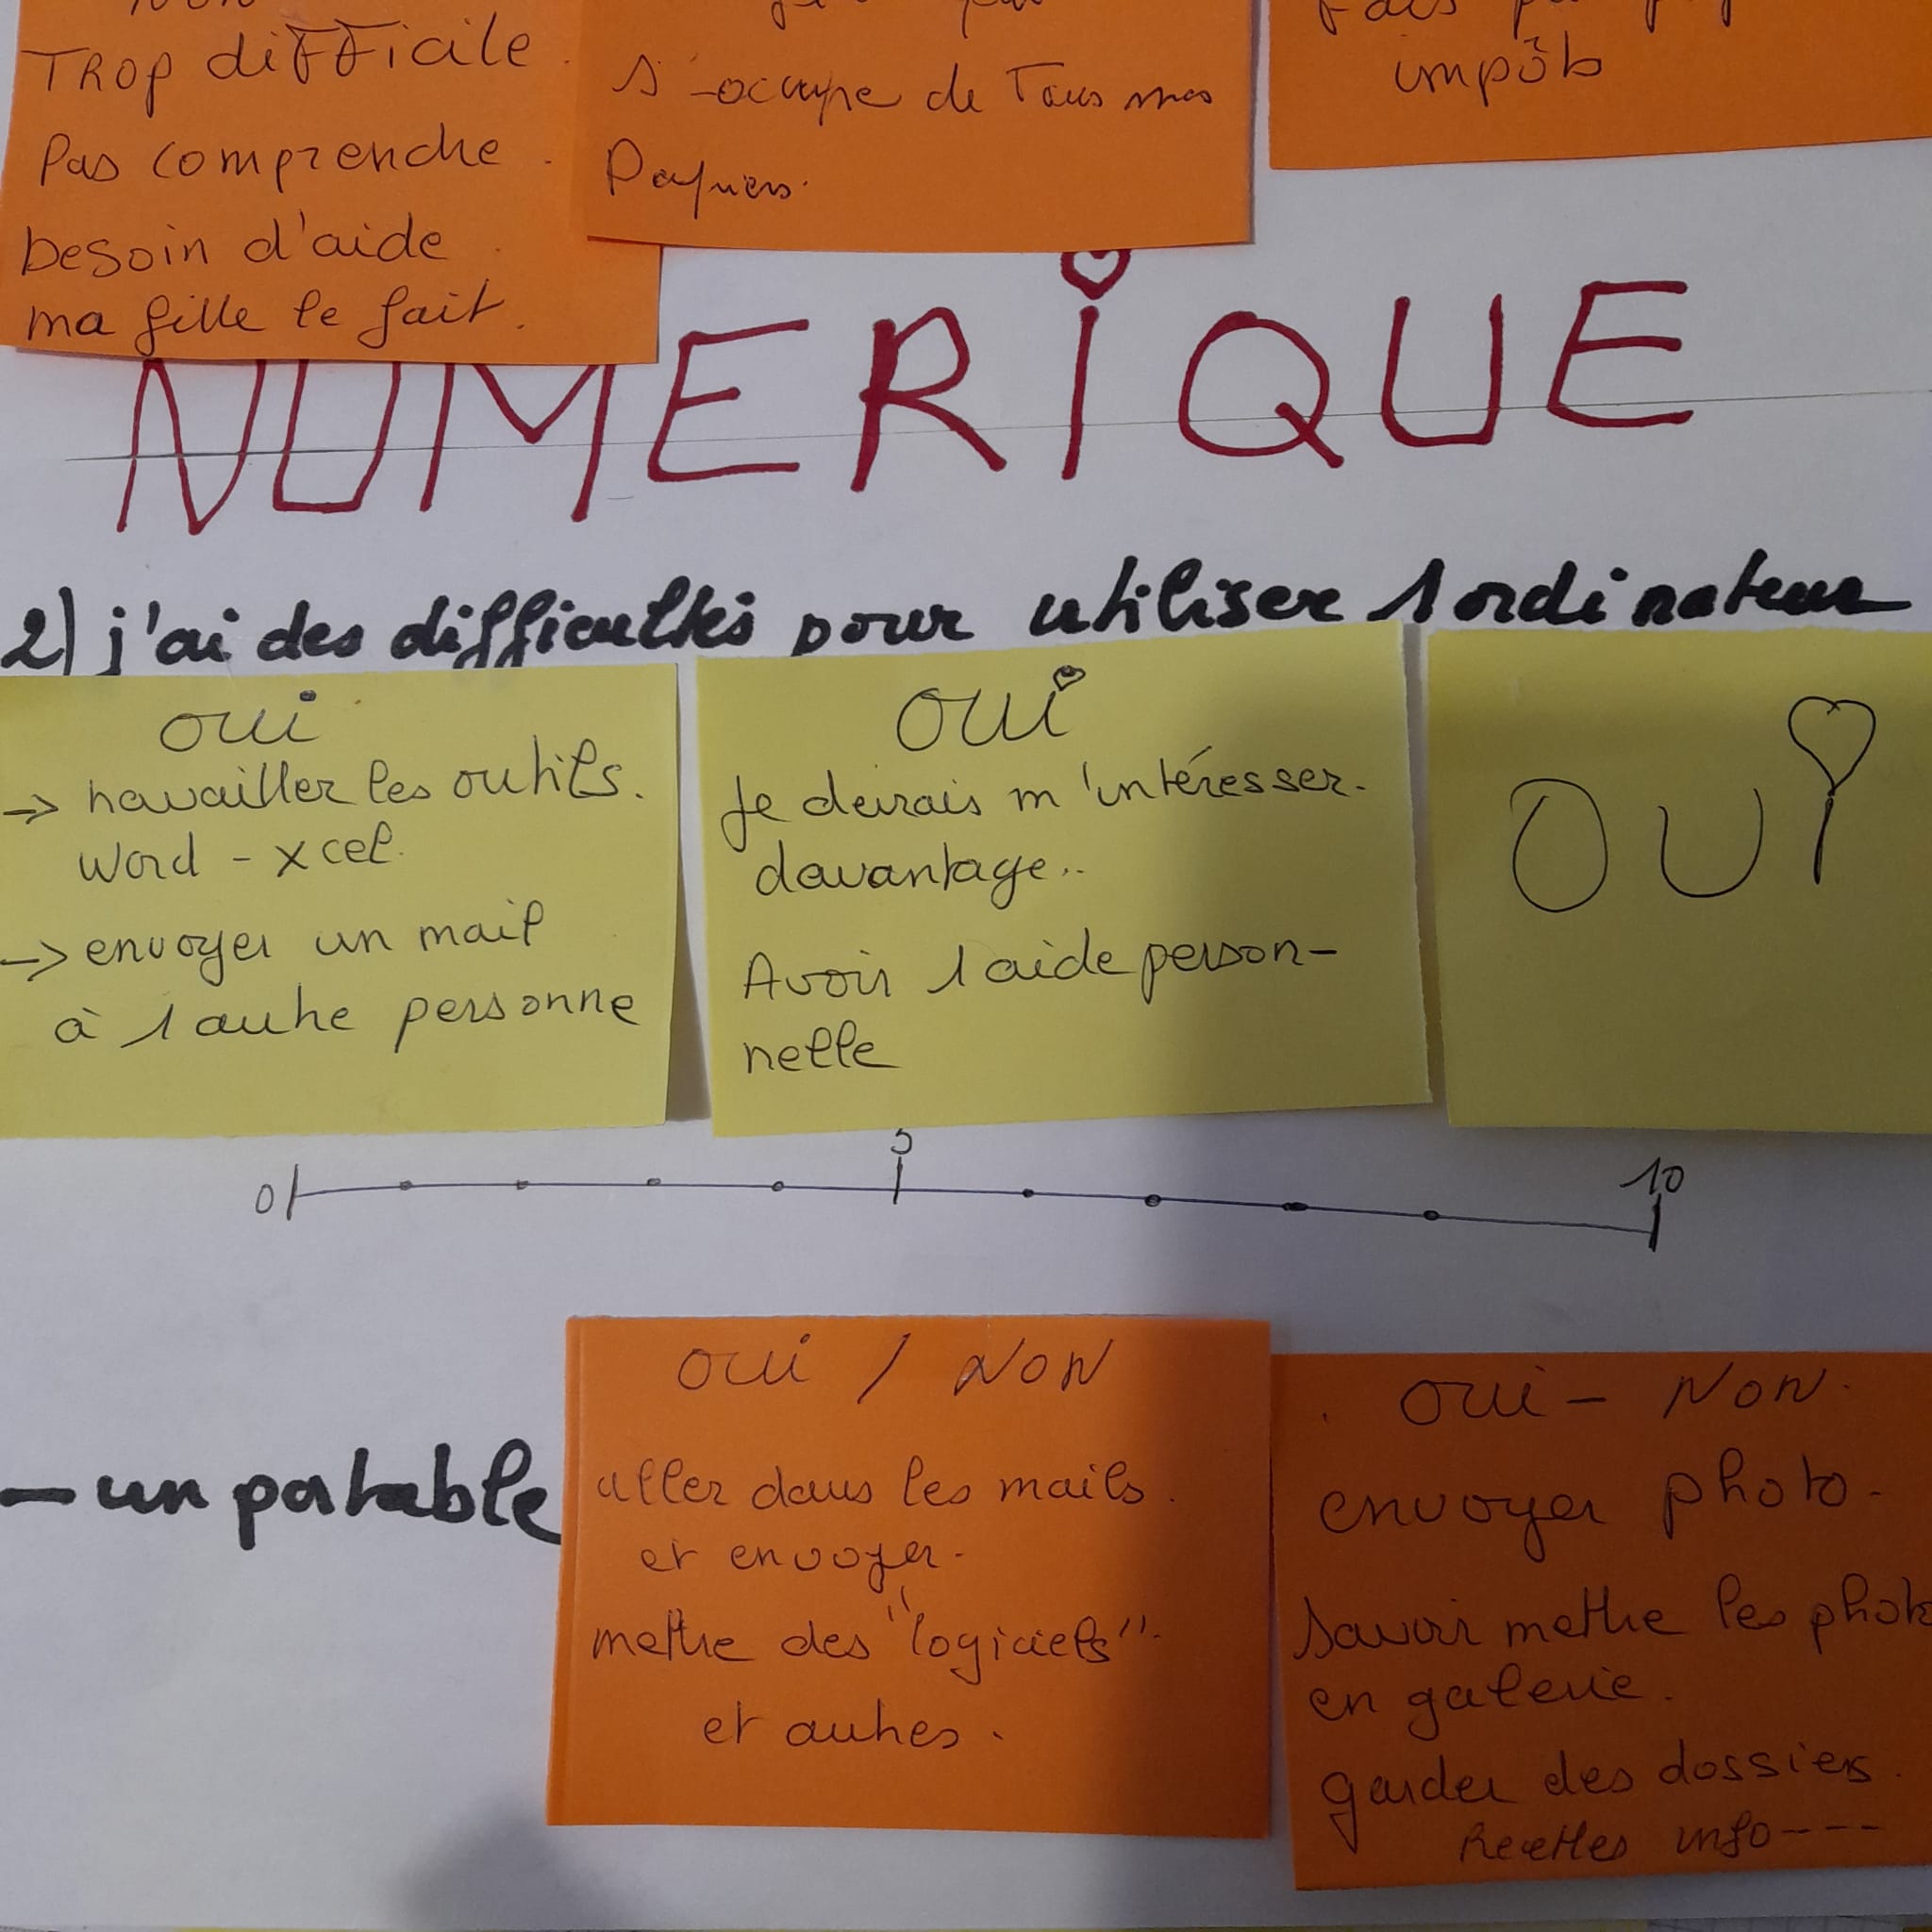 NON
TROP difficile.
Pas comprendre.
besoin d'aide.
ma fille le fait.
s'occupe de Tous mes
Papiers.
impôts
NUMERIQUE
2) j'ai des difficultés pour utiliser 1 ordinateur
oui
→ travailler les outils.
word - xcel.
→ envoyer un mail
à 1 autre personne
oui
Je devrais m'intéresser.
davantage..
Avoir 1 aide person-
nelle
OUi
0 5 10
- un portable
oui / NON
aller dans les mails.
et envoyer.
mettre des "logiciels".
et autres.
. oui - NON.
envoyer photo.
savoir mettre les photo
en galerie.
garder des dossiers.
Recettes info----